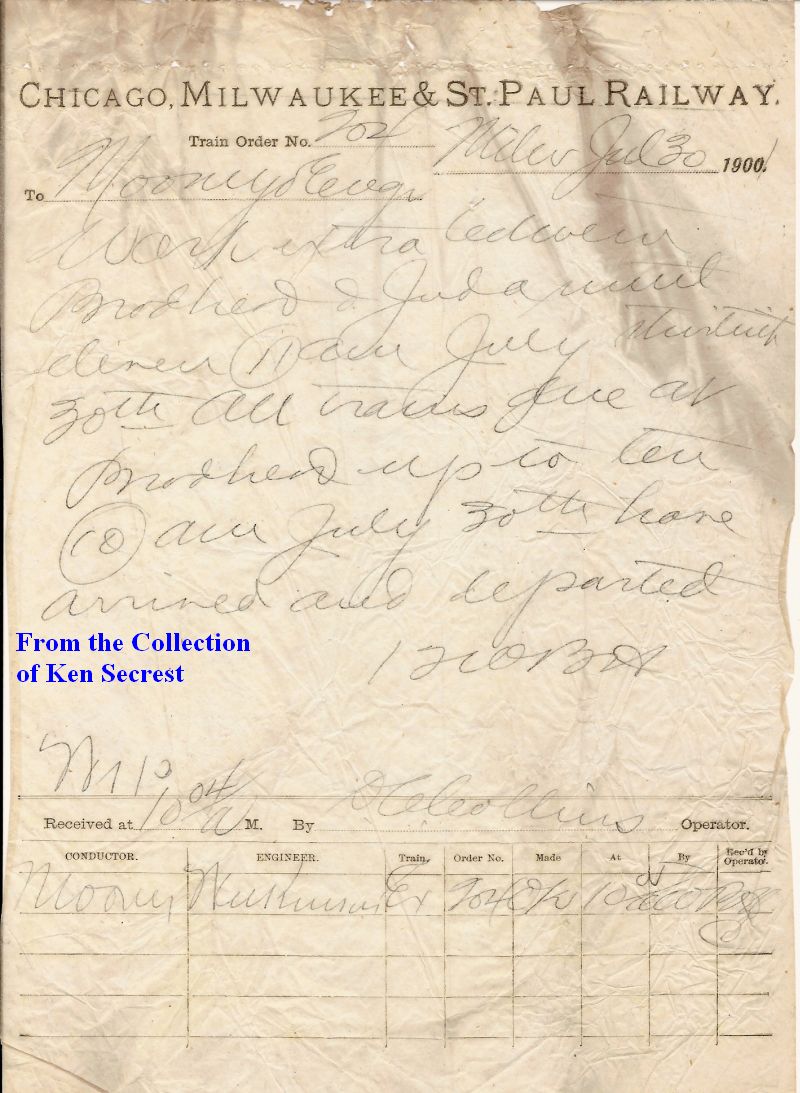 CHICAGO, MILWAUKEE & ST. PAUL RAILWAY.
Train Order No. 204 Milw Jul 30 1900.
To Mooney & Engr
Work extra between
Brodhead & Juda until
eleven (11) am July thirtieth
30th All trains due at
Brodhead up to ten
(10) am July 30th have
arrived and departed
From the Collection
of Ken Secrest
Received at 10 04 A M. By Collins Operator.
CONDUCTOR. ENGINEER. Train. Order No. Made At By Rec'd by Operator.
Mooney Ex 204 10